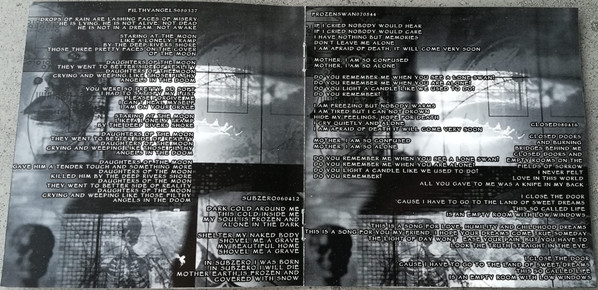 FILTHYANGELS080327
DROPS OF RAIN ARE LASHING FACES OF MISERY
HE IS LIVING, HE IS NOT ALIVE, NOT DEAD
HE IS NOT IN A DREAM, NOT AWAKE
STARING AT THE MOON
LIKE A LONELY TRAMP
BY THE DEEP RIVERS SHORE
THOSE THREE PRETTY FACES ON THE COVER
OF THE MOON
DAUGHTERS OF THE MOON
THEY WENT TO BETTER SIDE OF REALITY
DAUGHTERS OF THE MOON
CRYING AND WEEPING LIKE THOSE FILTHY
ANGELS IN THE DOOM
YOU WERE SO PRETTY, SO
I HAD TO
PLEASE FORGIVE ME
I CAN'T HEAL MYSELF
I AM ON YOUR GRACE
STARING AT THE MOON
LIKE A LONELY TRAMP
BY THE DEEP RIVERS SHORE
DAUGHTERS OF THE MOON
THEY WENT TO BETTER SIDE OF REALITY
DAUGHTERS OF THE MOON
CRYING AND WEEPING LIKE THOSE FILTHY
ANGELS IN THE DOOM
DAUGHTERS OF THE MOON
GAVE HIM A TENDER TOUCH AND SOMETHING MORE
DAUGHTERS OF THE MOON
KILLED HIM BY THE DEEP RIVERS SHORE
DAUGHTERS OF THE MOON
THEY WENT TO BETTER SIDE OF REALITY
DAUGHTERS OF THE MOON
CRYING AND WEEPING LIKE THOSE FILTHY
ANGELS IN THE DOOM
SUBZERO080412
DARK COLD AROUND ME
THIS COLD INSIDE ME
MY SOUL IS FROZEN AND
ALONE IN THE DARK
SHELTER MY NAKED BODY
SHOVEL ME A GRAVE
MY BEAUTIFUL HOME
SHOVEL ME A GRAVE
IN SUBZERO I WAS BORN
IN SUBZERO I WILL DIE
MOTHER EARTH IS FROZEN AND
COVERED WITH SNOW
FROZENSWAN070844
IF I CRIED NOBODY WOULD HEAR
IF I CRIED NOBODY WOULD CARE
I HAVE NOTHING BUT MEMORIES
DON'T LEAVE ME ALONE
I AM AFRAID OF DEATH IT WILL COME VERY SOON
MOTHER I AM SO CONFUSED
MOTHER I AM SO ALONE
DO YOU REMEMBER ME WHEN YOU SEE A LONE SWAN?
DO YOU REMEMBER ME WHEN YOU ARE ALONE?
DO YOU LIGHT A CANDLE LIKE WE USED TO DO?
DO YOU REMEMBER?
I AM FREEZING BUT NOBODY WARMS
I AM TIRED BUT I CAN NOT DROWN
HIDE MY FEELINGS, HOPE FOR DEATH
CRY QUIETLY AND ALONE
I AM AFRAID OF DEATH IT WILL COME VERY SOON
MOTHER I AM SO CONFUSED
MOTHER I AM SO ALONE
DO YOU REMEMBER ME WHEN YOU SEE A LONE SWAN?
DO YOU REMEMBER ME WHEN YOU ARE ALONE?
DO YOU LIGHT A CANDLE LIKE WE USED TO DO?
DO YOU REMEMBER?
CLOSED080416
CLOSED DOORS
AND BURNING
BRIDGES BEHIND ME
CLOSED DOORS AND
EMPTY ROOMS IN THE
FIELDS OF SORROW
I NEVER FELT
LOVE IN THIS WORLD
ALL YOU GAVE TO ME WAS A KNIFE IN MY BACK
I CLOSE THE DOOR
'CAUSE I HAVE TO GO TO THE LAND OF SWEET DREAMS
THIS SO CALLED LIFE
IS AN EMPTY ROOM WITH LOW WINDOWS
THIS IS A SONG FOR LOVE, HUMILITY AND CHILDHOOD DREAMS
THIS IS A SONG FOR YOU MY FRIEND, I HOPE YOUR DREAMS COME TRUE ONEDAY
THE LIGHT OF DAY WON'T EASE YOUR PAIN BUT YOU HAVE TO
LOOK THE TRUTH STRAIGHT IN THE EYE
I CLOSE THE DOOR
'CAUSE I HAVE TO GO TO THE LAND OF SWEET DREAMS
THIS SO CALLED LIFE
IS AN EMPTY ROOM WITH LOW WINDOWS